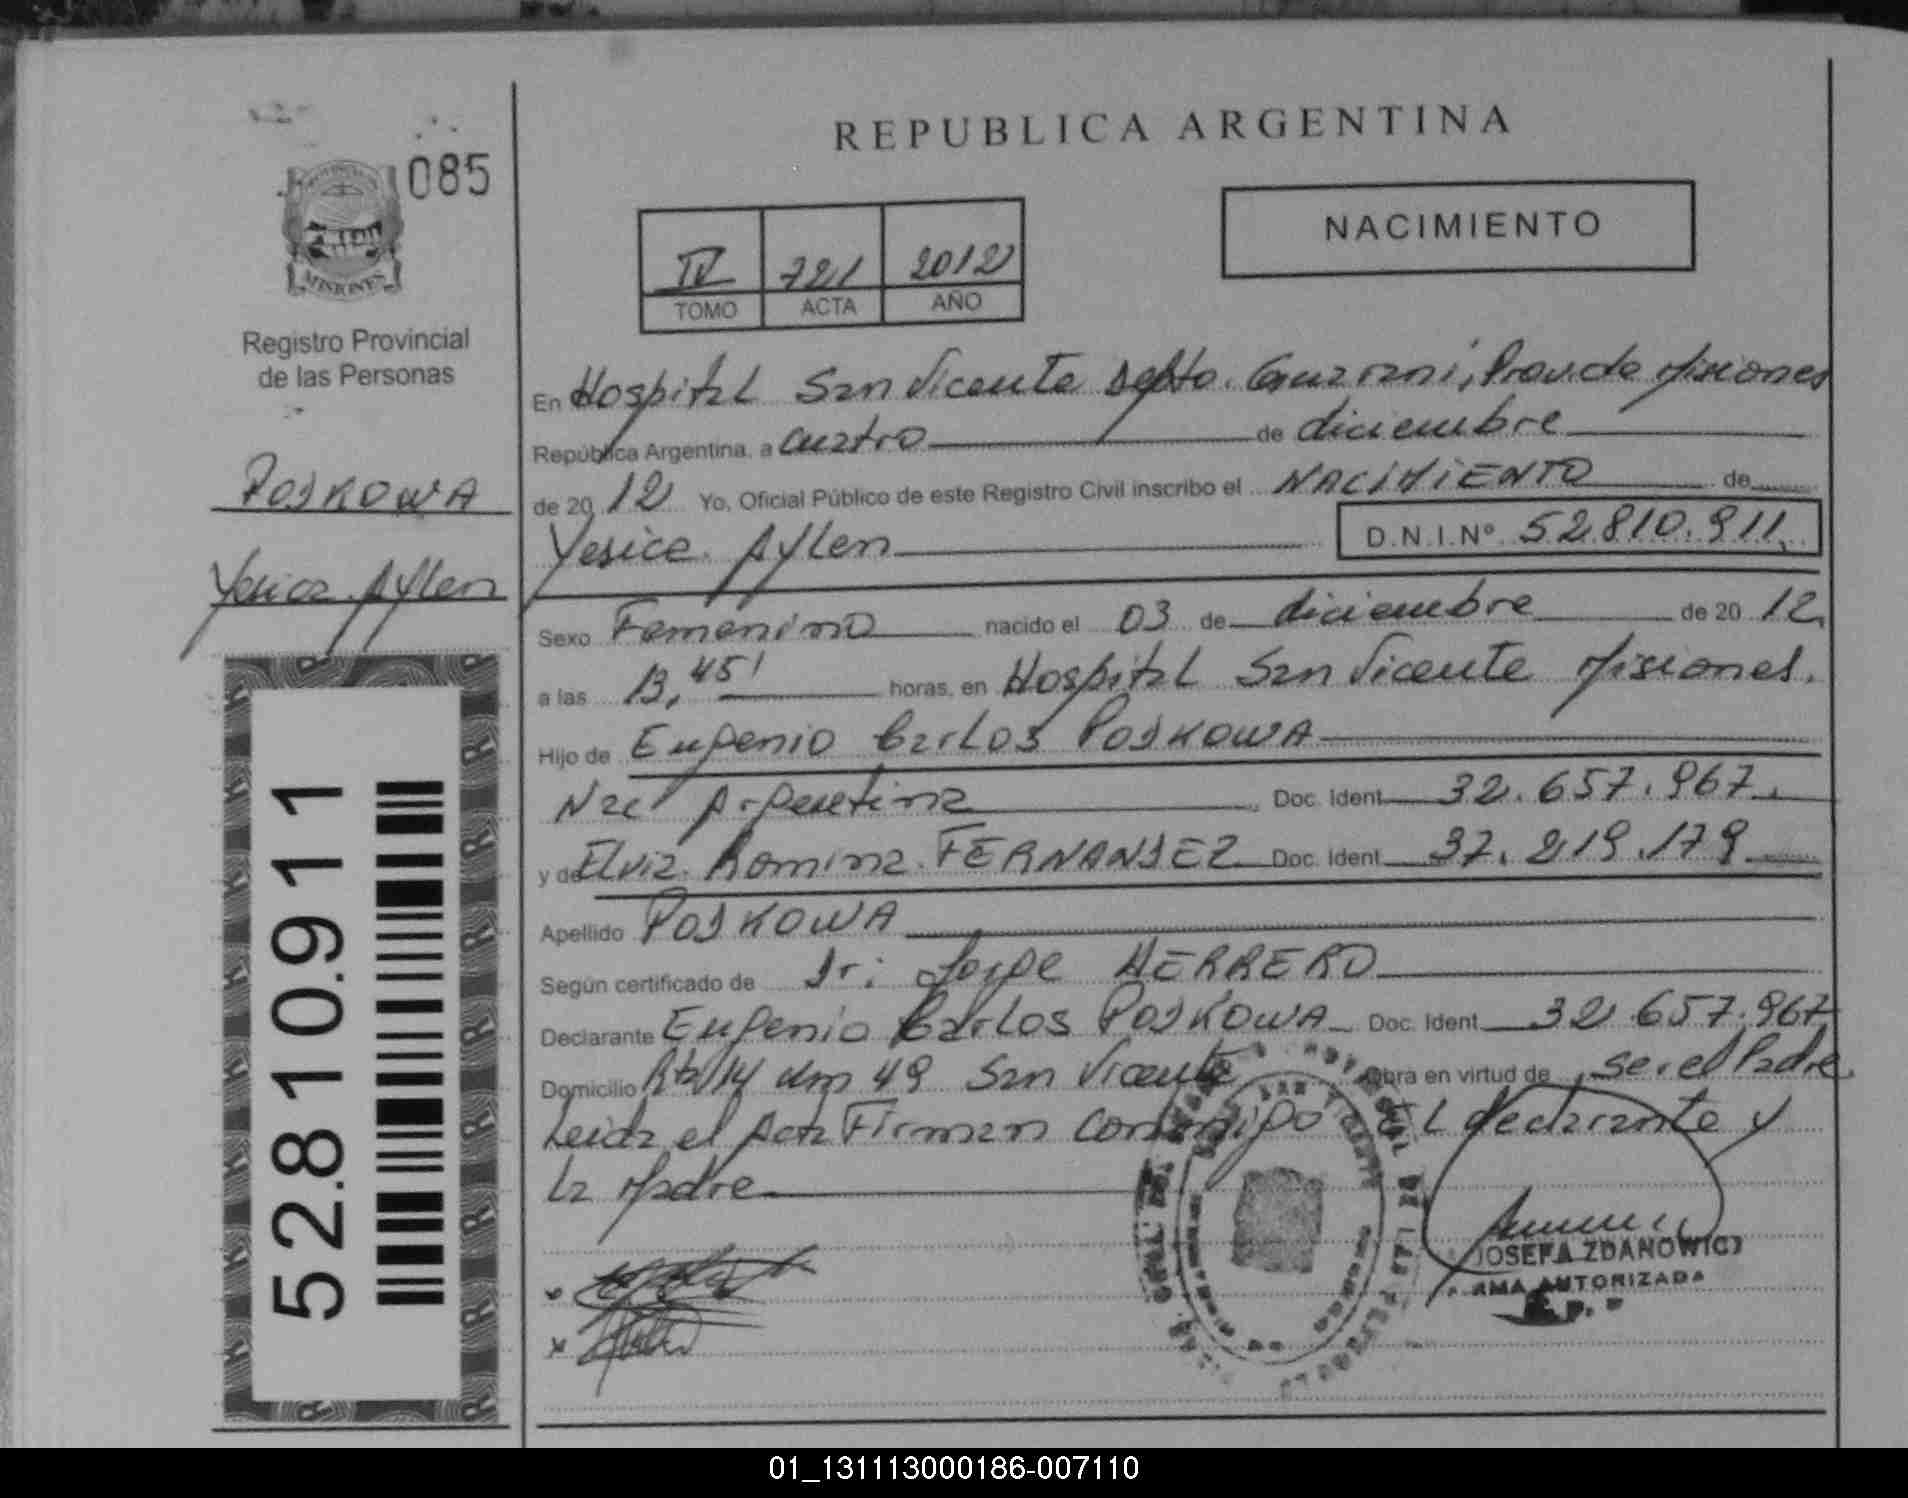 REPUBLICA ARGENTINA
085
NACIMIENTO
IV 721 2012
TOMO ACTA AÑO
MISIONES
Registro Provincial
de las Personas
POSKOWA
Yesica Aylen
52.810.911
En Hospital San Vicente Depto. Guarani, Prov. de Misiones
República Argentina, a cuatro de diciembre
de 20 12 Yo, Oficial Público de este Registro Civil inscribo el NACIMIENTO de
Yesica Aylen D.N.I.Nº 52.810.911.
Sexo Femenino nacido el 03 de diciembre de 20 12.
a las 13,45' horas, en Hospital San Vicente Misiones.
Hijo de Eugenio Carlos POSKOWA
Nac Argentina Doc. Ident 32.657.967.
y de Elvia Romina FERNANDEZ Doc. Ident 37.219.179
Apellido POSKOWA
Según certificado de Dr: Jorge HERRERO
Declarante Eugenio Carlos POSKOWA Doc. Ident 32.657.967
Domicilio Rta 14 km 49 San Vicente Obra en virtud de ser el Padre
Leida el Acta Firman conmigo El declarante y
la Madre
JOSEFA ZDANOWICZ
FIRMA AUTORIZADA
01_131113000186-007110